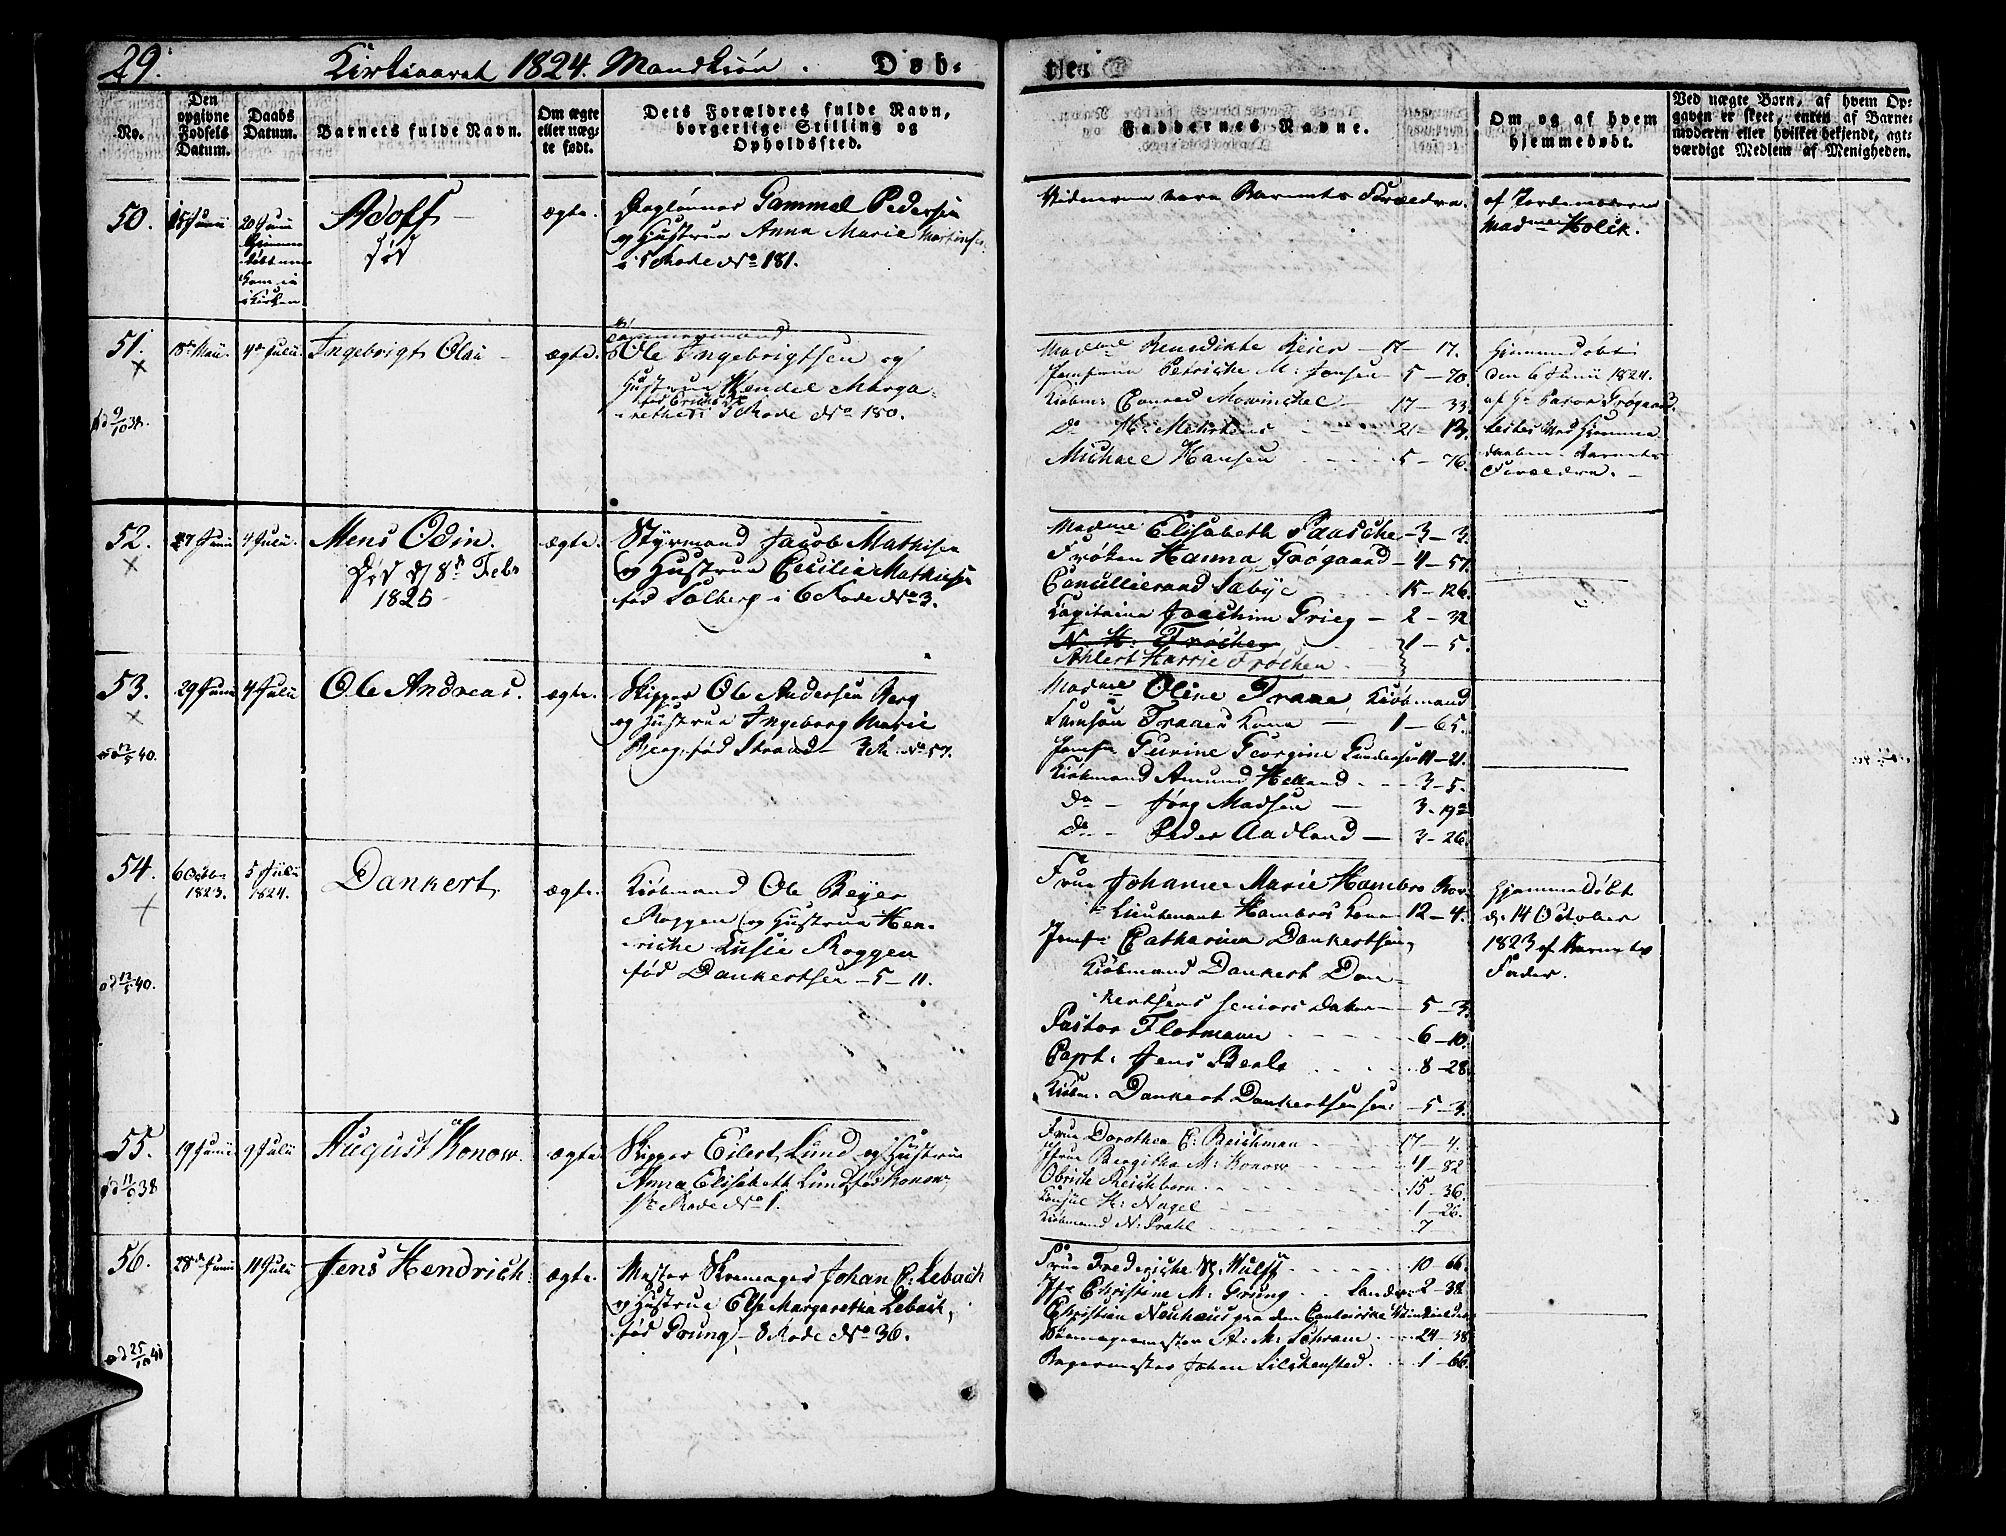 29.
Kirkeaaret 1824. Mandkiøn. Døb-
te.
No.
Den opgivne Fødsels Datum.
Daabs Datum.
Barnets fulde Navn.
Om ægte eller uægte født.
Dets Forældres fulde Navn, borgerlige Stilling og Opholdssted.
Faddernes Navne.
Om og af hvem hjemmedøbt.
Ved uægte Børn, af hvem Opgaven er skeet, enten af Barnemoderen eller hvilket bekjendt, agtværdigt Medlem af Menigheden.
50.
18 Junii
20 Junii
Adolf
død
ægte.
Dagleiner Gammel Pedersen
og Hustrue Anna Marie Martinsen
i 5 Rode No 181.
Vidnerne vare Barnets Forældre.
af Jordemoderen
Madme Holck.
51.
18 Maii.
4de Julii.
Ingebrigt Olai
ægte.
Tømmermand
Ole Ingebrigtsen og
Hustrue Wendel Marga-
rethe i 5 Rode No 180.
Madme Benedikte Beier 17 - 17.
Jomfrue Petriche M. Jansen 5 - 70.
Kiøbm: Conrad Mowinchel 17 - 33.
Do H. Mehrtens 21 - 13.
Michael Hansen 5 - 76.
Hjemmedøbt
den 6 Junii 1824.
af Hr Pastor Grøgaard.
Testes ved Hjemme
daaben Barnets
Forældre.
52.
27 Junii
4 Julii.
Mens Odin
død d 8de Febr
1825
ægte.
Styrmand Jacob Mathisen
og Hustrue Cecilia Mathisen
fød Solberg i 6 Rode No 3.
Madme Elisabeth Paasche 3 - 3.
Frøken Hanna Grøgaard 4 - 57.
Cancellieraad Sæbye 15 - 126.
Kapitaine Joachim Grieg 2 - 32
N. H. Frøchen 21 - 5.
Ahlert Harrie Frøchen.
53.
29 Junii
4 Julii
Ole Andreas.
ægte.
Skipper Ole Andersen Berg
og Hustrue Ingeborg Marie
Berg, fød Strand 3 R. No 57.
Madme Oline Trane Kiøbmand
Samson Tranes Kone 1 - 65.
Jomfr Gurine Georgine Gundersen 11 - 21.
Kiøbmand Amund Helland 3 - 5.
do Jørg Madsen 3 - 192
do Peder Aadland 3 - 26.
54.
6 Octbr
1823.
5 Julii
1824.
Dankert
ægte.
Kiøbmand Ole Beyer
Roggen og Hustrue Hen-
riche Lusie Roggen
fød Dankertsen 5 - 11.
Frue Johanne Marie Hambro
Lieutenant Hambros Kone 12 - 4.
Jomfr Catharina Dankertsen,
Kiøbmand Dankert Dan-
kertsens seniors datter 5 - 3.
Pastor Flotmann 6 - 10.
Capt. Jens Berle 8 - 28.
Kiøbm. Dankert Dankertsen sen: 5 - 3.
Hjemmedøbt
d. 14 October
1823 af Barnets
Fader.
55.
19 Junii
9 Julii
August Konow.
ægte
Skipper Eilert Lund og Hustrue
Anna Elisabeth Lund fød Konow,
1ste Rode No 1.
Frue Dorothea C. Reichman 17 - 4.
Jfrue Bergitha M. Konow 4 - 82
Obriste Reichborn 15 - 36.
Konsul H. Nagel 1 - 26.
Kiøbmand N. Prahl 7
56.
28de Junii
11 Julii
Jens Hendrich
ægte.
Mester Skomager Johan C. Lebach
og Hustrue Else Margaretha Lebach,
fød Grung 8 Rode No 36.
Frue Frederiche W. Wulff 10 - 66.
Jfr Christine M. Grung 2 - 38.
Christian Neuhaus
Skomagermester A. M. Schram 24 - 38
Bagermester Johan Lilchensted 1 - 66.